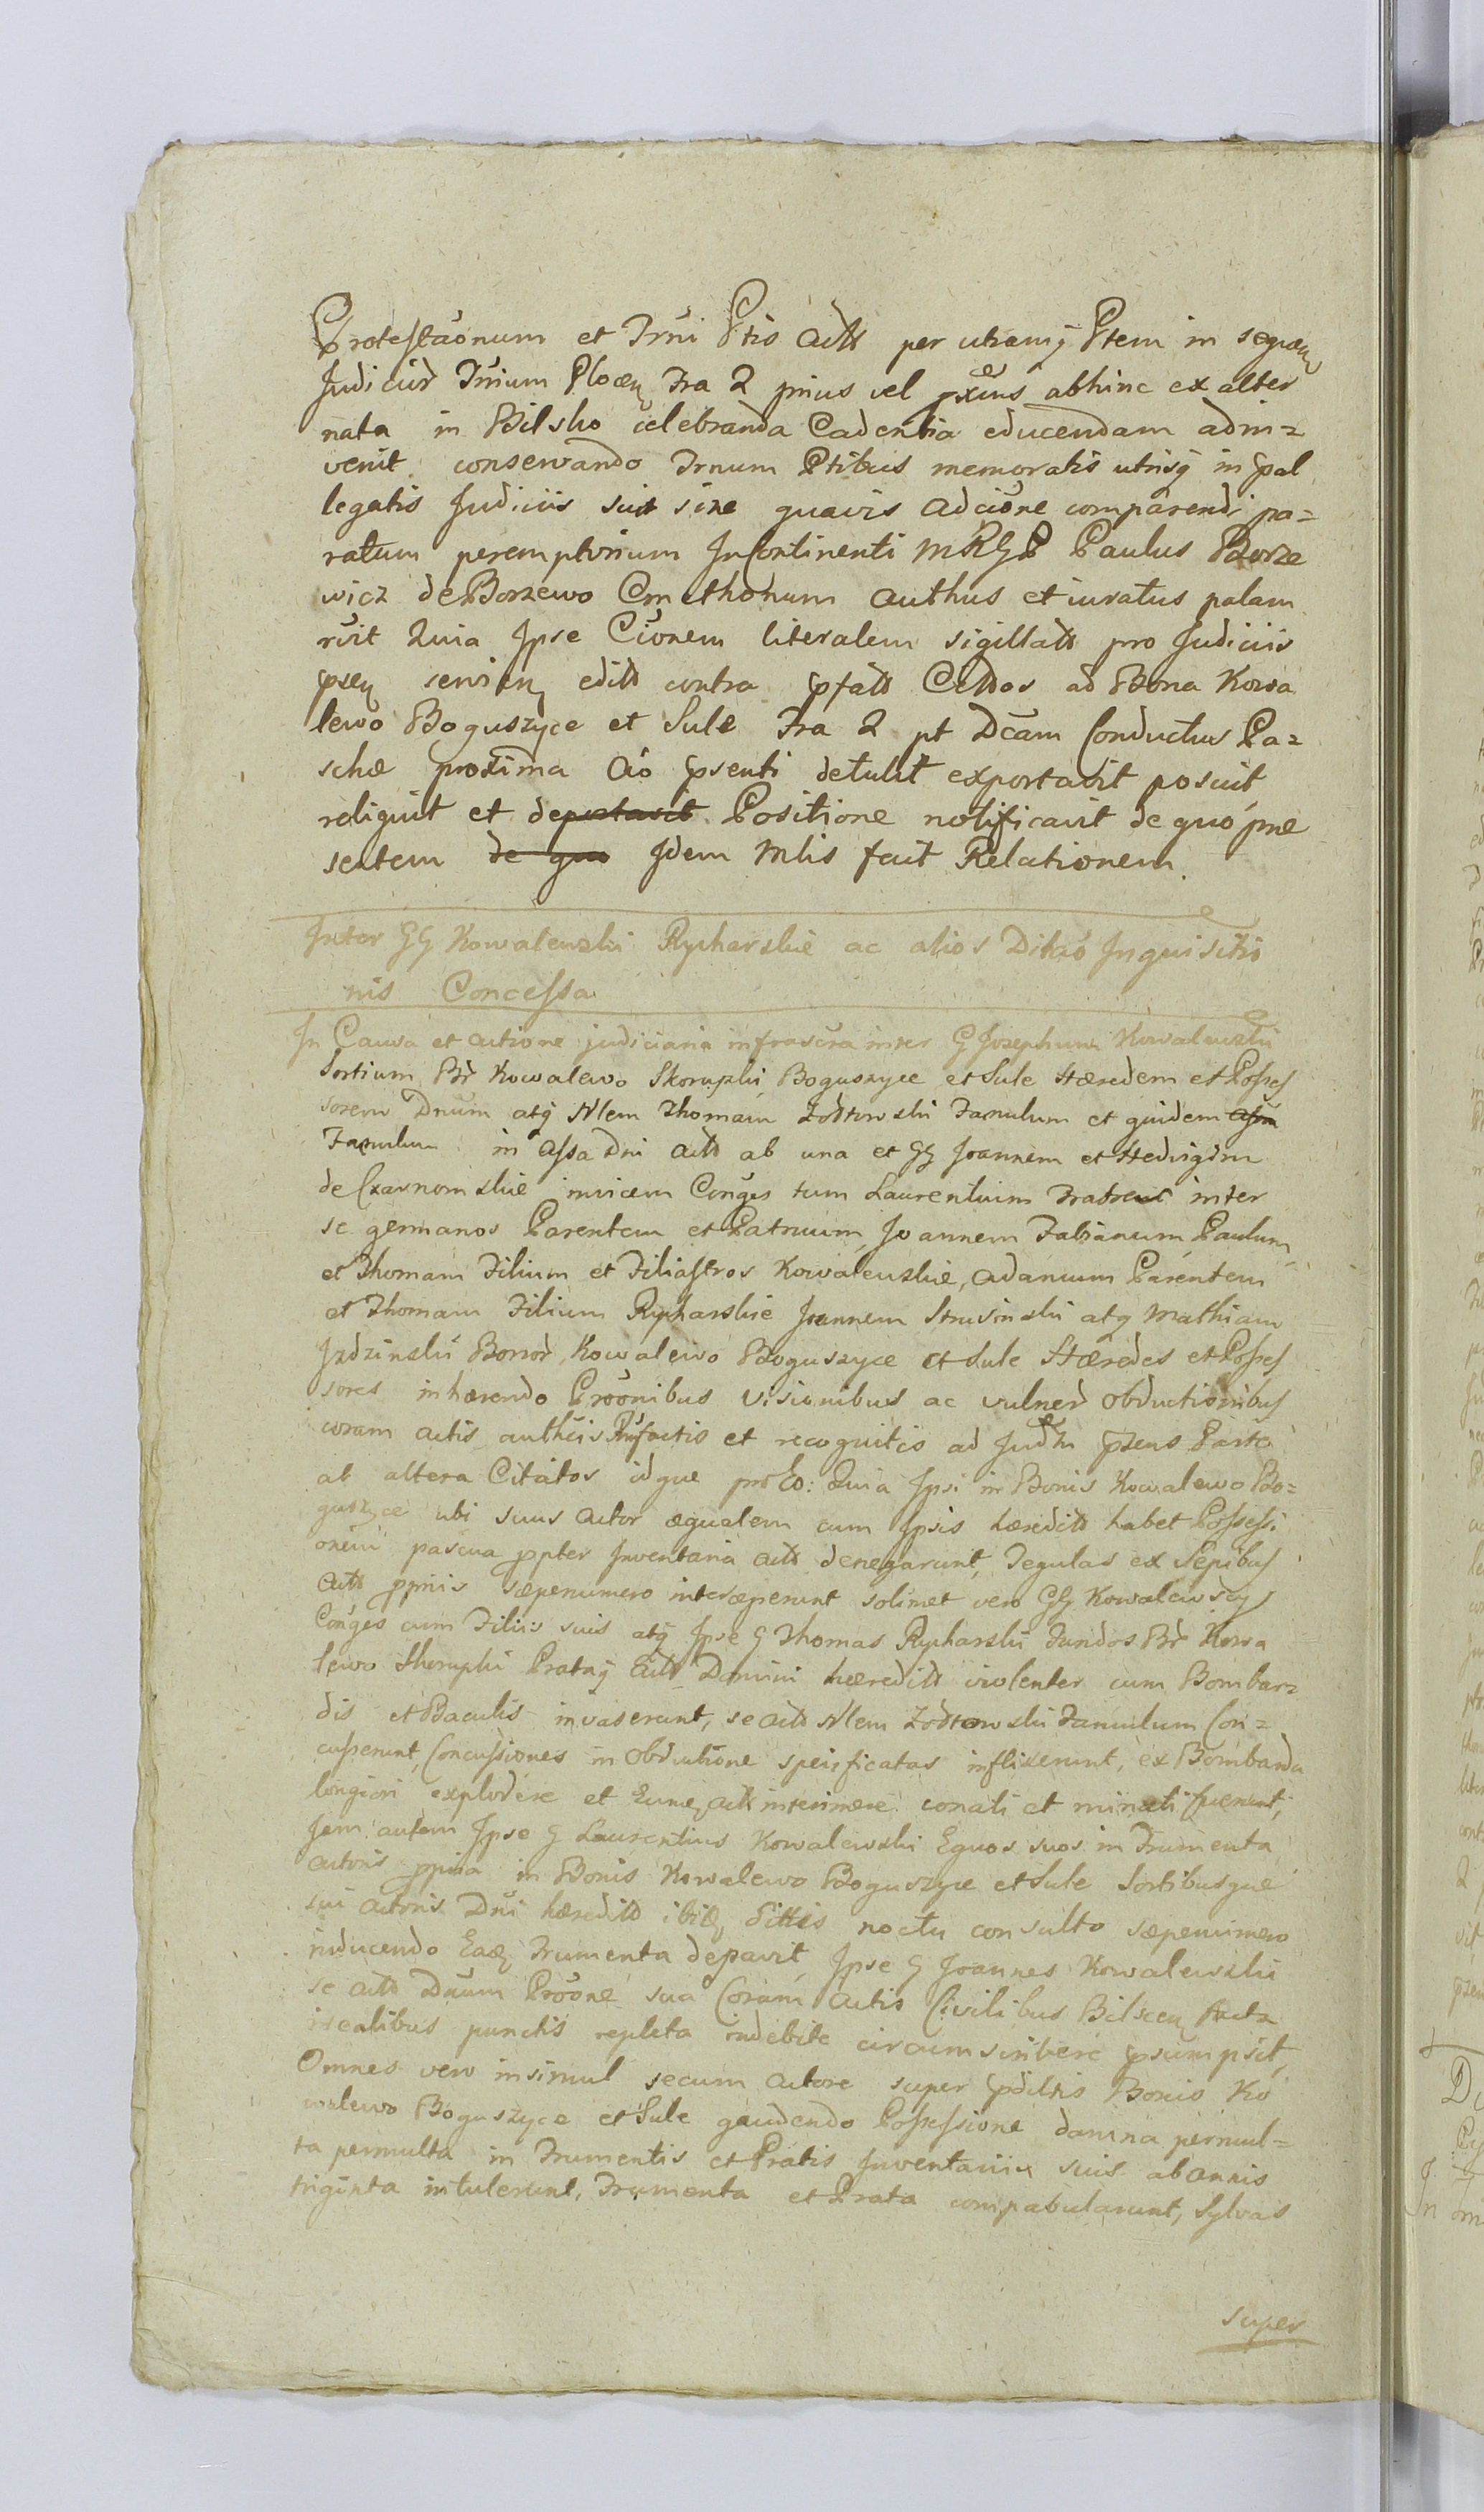 Protestaōnum et Trni Ptis Actt per utramq Ptem in sequen
Judiciūd Trrium Plocen Fra 2 prius vel pxius abhinc ex alter
nata in Bilsko celebranda Cadentia educendam adin=
venit conservando Trnum Ptibus memoratis utrisq in ppal
legatis Judiciis suis sine quavis Adcione comparendi pa=
ratum peremptorium InContinenti MRGP Paulus Borze
wicz de Borzewo Cmethonum Authus et iuratus palam
rvit Quia Ipse Cionem literalem sigillatt pro Judiciis
psen servien editt contra pfatt Cittos ad Bona Kowa
lewo Boguszyce et Sule Fra 2 pt Dcam Conductus Pa=
schæ proxima Ao psenti detulit exportavit posuit
reliquit et deportavit Positione notificavit de quo præ
sentem de quo Idem Mlis fecit Relationem.
Inter GG Kowalewski Rycharskie ac alios Dilaō Inquisitio
nis Concessa
In Causa et actione judiciaria infrascra inter G Josephum Kowalewski
Sortium Br Kowalewo Skorupki Boguszyce et Sule Hæredem et Posses
sorem Dnum atq Nlem Thomam Zodrowski Famulum et quidem
Famulum in Assa Dni Actt ab una et GG Joannem et Hedvigem
de Czarnomskie invicem Conges tum Laurentium Fratrem inter
se germanos Parentem et Patruum, Joannem Fabianum Paulum
et Thomam Filium et Filiastros Kowalewskie, Adamum Parentem
et Thomam Filium Rycharskie Joannem Strusinski atq Mathiam
Jzdzinski Bonor Kowalewo Boguszyce et Sule Hæredes et Posses
sores inhærendo Proōnibus Visionibus ac vulner Obductionibus
coram actis authcis factis et recognitis ad Judm psens Parte
ab altera Citatos idque pro Eo: Quia Ipsi in Bonis Kowalewo Bo=
guszyce ubi suus Actor æqualem cum Ipsis hæreditt habet Possessi
onem pascua ppter Inventaria Actt denegarunt, Tegulas ex Sepibus
Actt ppriis sæpenumero interceperunt solimet vero GG Kowalewscy
Conges cum Filiis suis atq Ipse G Thomas Rycharski Fundos Br Kowa
lewo Skorupki Prataq Actt Domini hæreditt violenter cum Bombar=
dis et Baculis invaserunt, se Actt Nlem Zodrowski Famulum Con=
cusserunt, Concussiones in Obductione specificatas inflixerunt, ex Bombarda
longiori explodere et Eumq Actt interimere conati et minati fuerunt;
Jam autem Ipse G Laurentius Kowalewski Equos suos in Frumenta
Actoris ppria in Bonis Kowalewo Boguszyce et Sule Sortibusque
sui Actoris Dni hæreditt ibiq Sittis noctu consulto sæpenumero
inducendo Eaq Frumenta depavit, Ipse G Joannes Kowalewski
se Actt Dnum Proōne sua Coram Actis Civilibus Bilscen facta
irealibus punctis repleta indebite circumscribere psumpsit,
Omnes vero insimul secum Actore super pdictis Bonis Ko
walewo Boguszyce et Sule gaudendo Possessione damna permul=
ta permulta in Frumentis et Pratis Inventariis suis ab annis
triginta intulerunt, Frumenta et Prata compabularunt, Sylvas
super